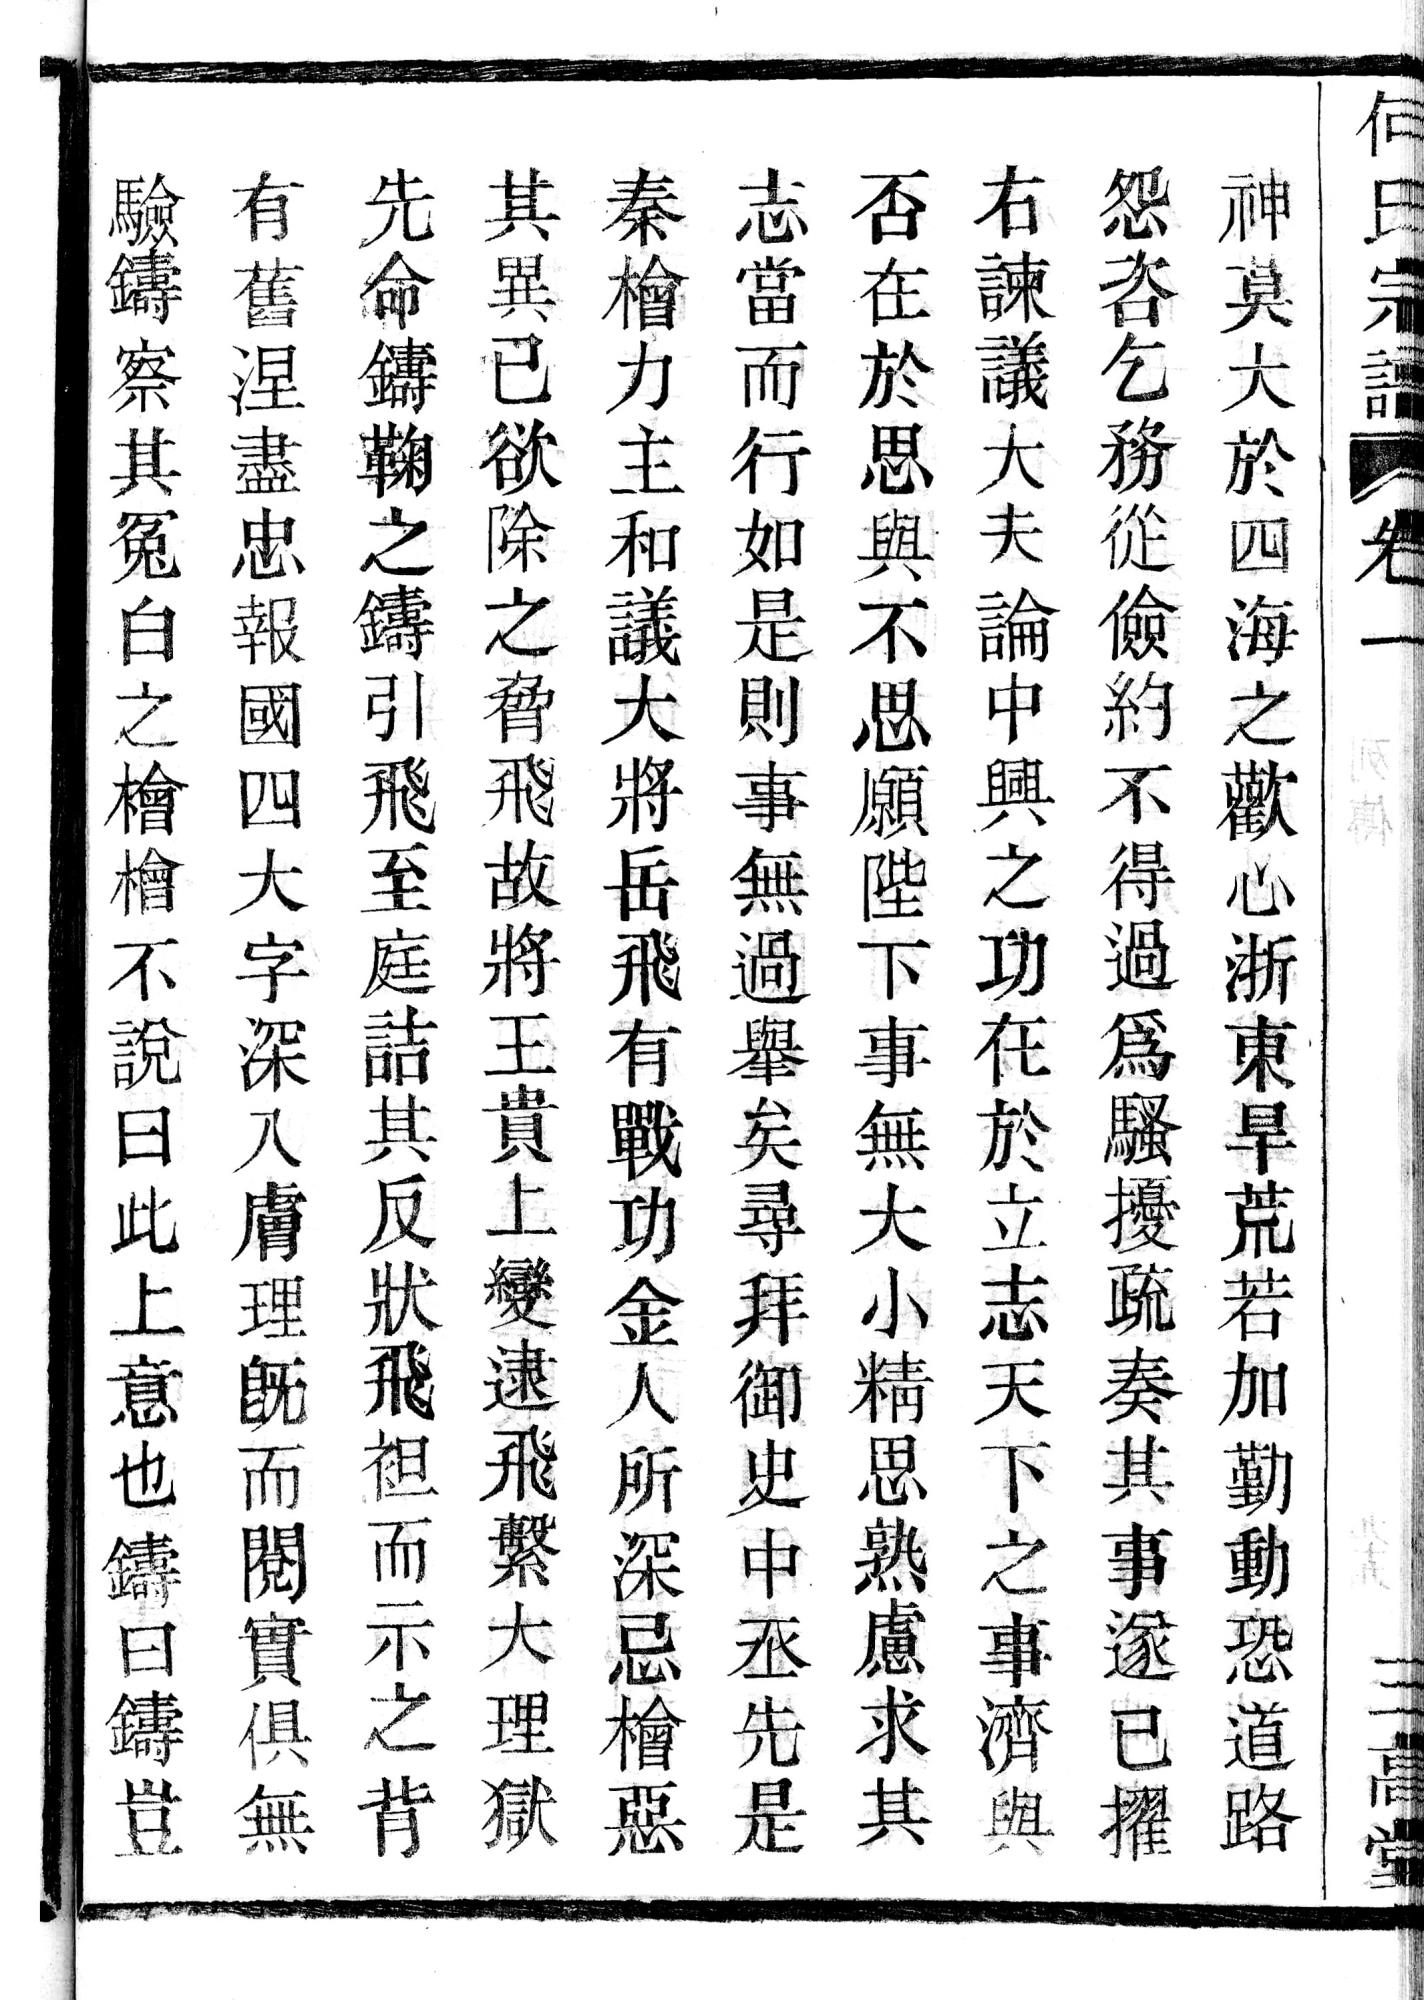 何氏宗譜 卷一 三高堂
神莫大於四海之歡心浙東旱荒若加勤動恐道路
怨咨乞務從儉約不得過爲騷擾疏奏其事遂已擢
右諫議大夫論中興之功在於立志天下之事濟與
否在於思與不思願陛下事無大小精思熟慮求其
志當而行如是則事無過舉矣尋拜御史中丞先是
秦檜力主和議大將岳飛有戰功金人所深忌檜惡
其異已欲除之脅飛故將王貴上變逮飛繫大理獄
先命鑄鞠之鑄引飛至庭詰其反狀飛袒而示之背
有舊涅盡忠報國四大字深入膚理旣而閱實俱無
驗鑄察其冤白之檜檜不說曰此上意也鑄曰鑄豈